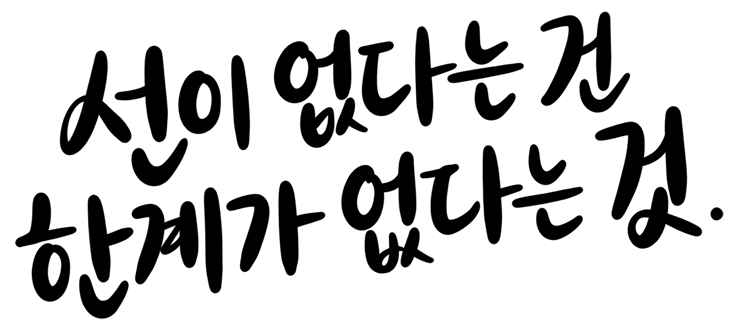 선이 없다는 건
한계가 없다는 것.